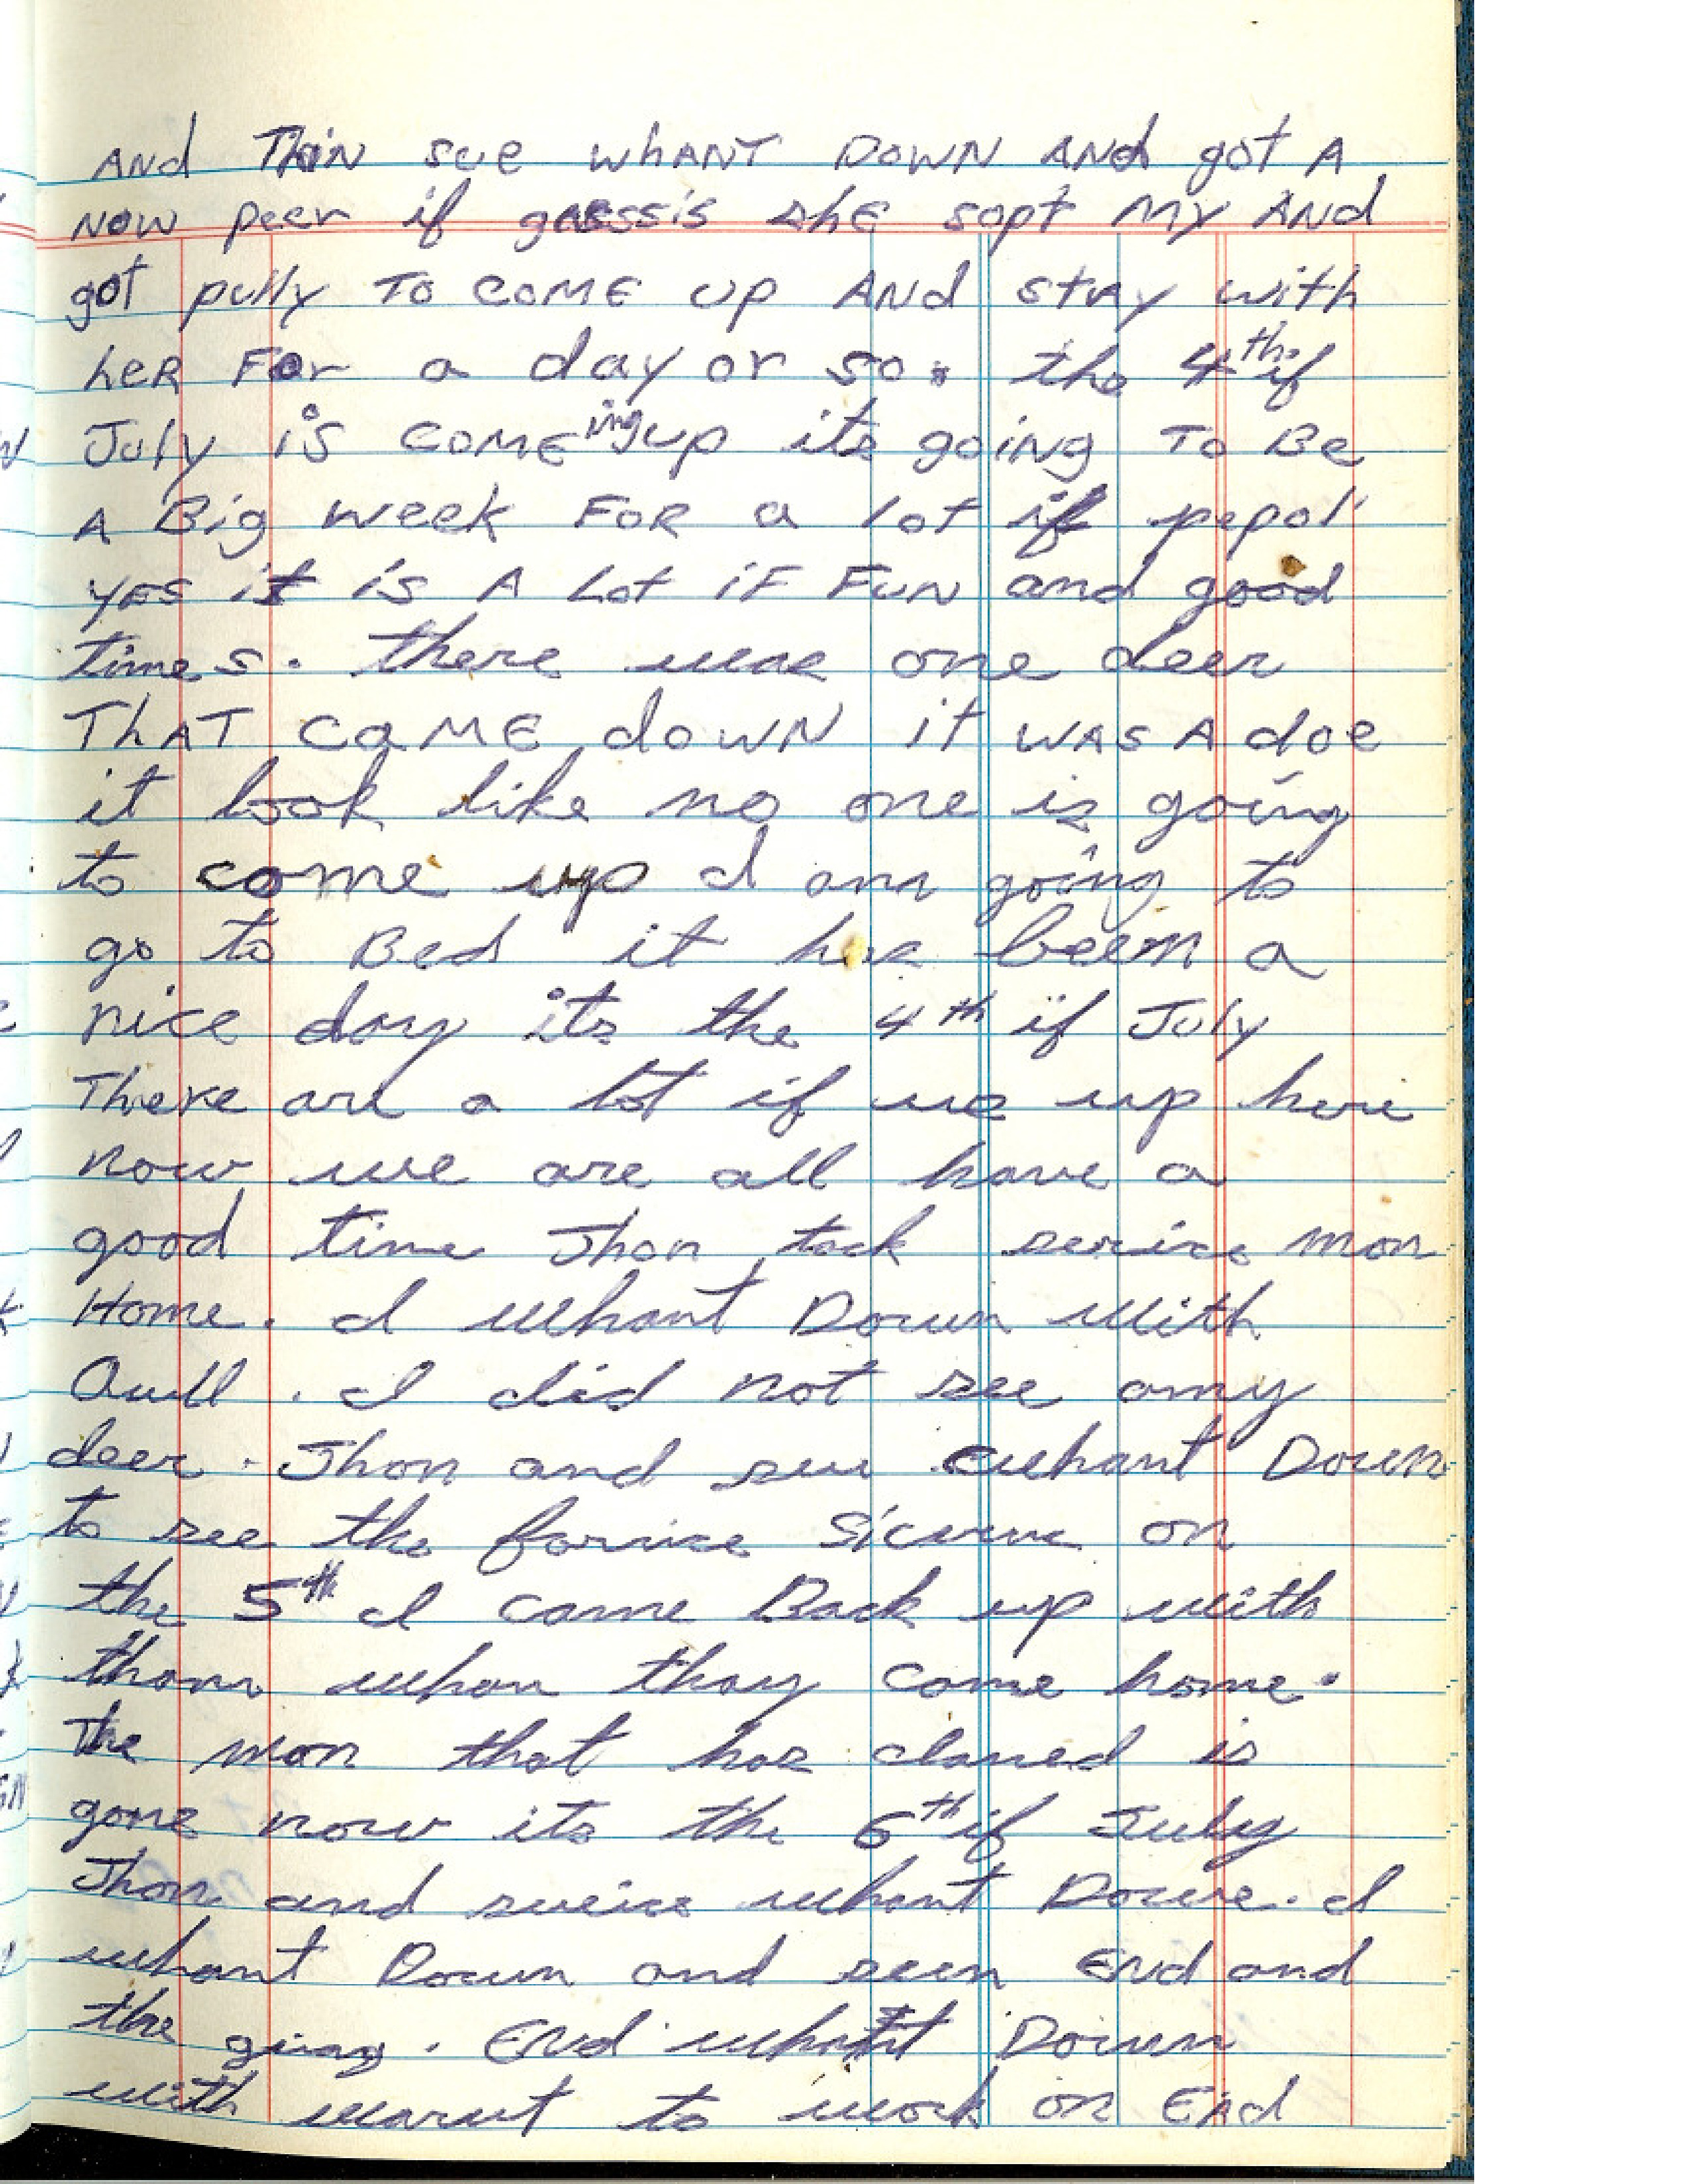 AND Thin sue whANT DOWN ANd got A
NOW peer if gassis shE sopt My ANd
got pully TO COME up ANd stAy with
heR For a day or so. the 4th if
July is COMEing up its going TO Be
A Big week FOR a lot if pepol
yes it is A Lot iF FuN and good
times. there was one deer
ThAT CaME doWN it wAs A doe
it look like no one is going
to come up I am going to
go to Bed it has been a
nice day its the 4th if July
There are a lot if us up here
now we are all have a
good time Jhon tock man
Home. I Whant Down With
I did not see any
deer. Jhon and sue whant Down
to see the on
the 5th I came Back up with
tham whan thay come home.
The man that has claned is
gone now its the 6th if July
Jhon and whant Down. I
whant Down and seen End and
the . End whant Down
with to work on End